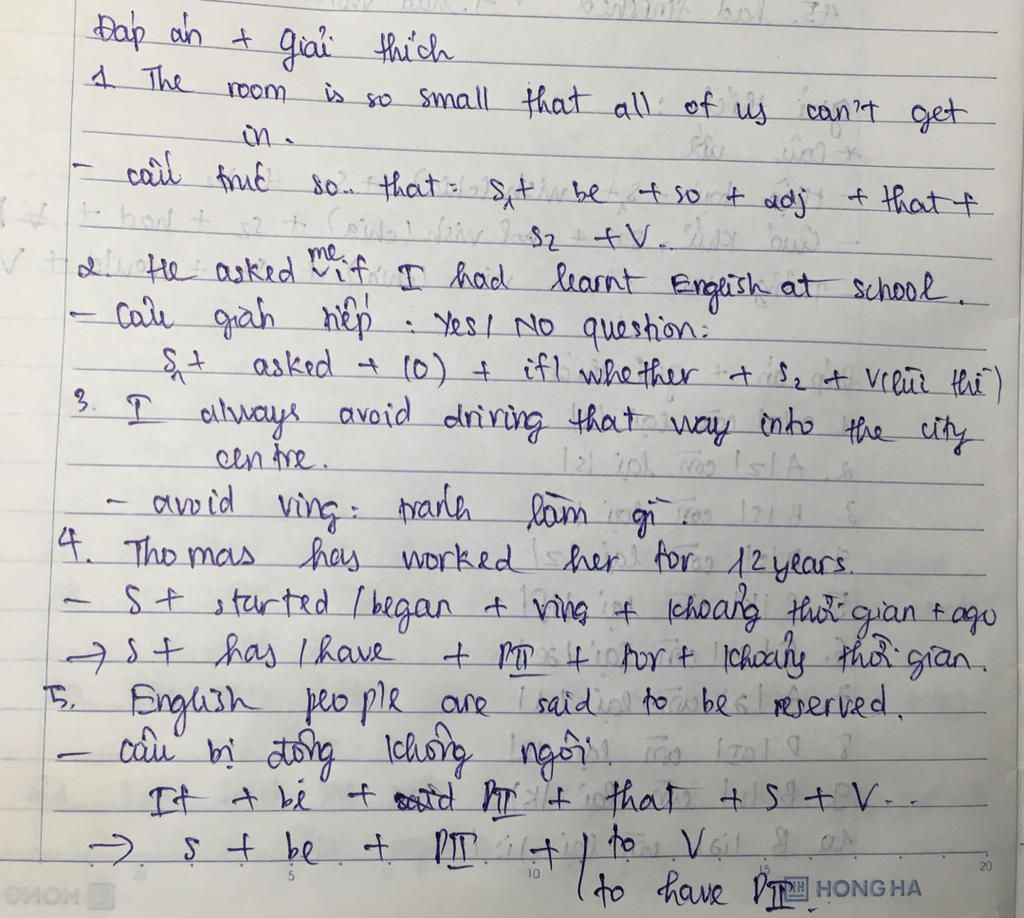 Đáp án + Giải thích
1 The room is so small that all of us can't get
in.
- cấu trúc so.. that: S1+ be + so + adj + that +
S2 + V..
2 He asked me if I had learnt English at school.
- Câu gián tiếp : Yes/ No question:
S1+ asked + (O) + if/ whether + S2 + V(lùi thì)
3. I always avoid driving that way into the city
centre.
- avoid Ving: tránh làm gì.
4. Thomas has worked her for 12 years.
- S + started /began + Ving + khoảng thời gian + ago
→ S + has / have + PII + for + khoảng thời gian.
5. English people are said to be reserved.
- câu bị động không ngôi:
It + be + PII + that + S + V...
→ S + be + PII + / to V
/ to have PII.
5 10 15 20
HONG HA